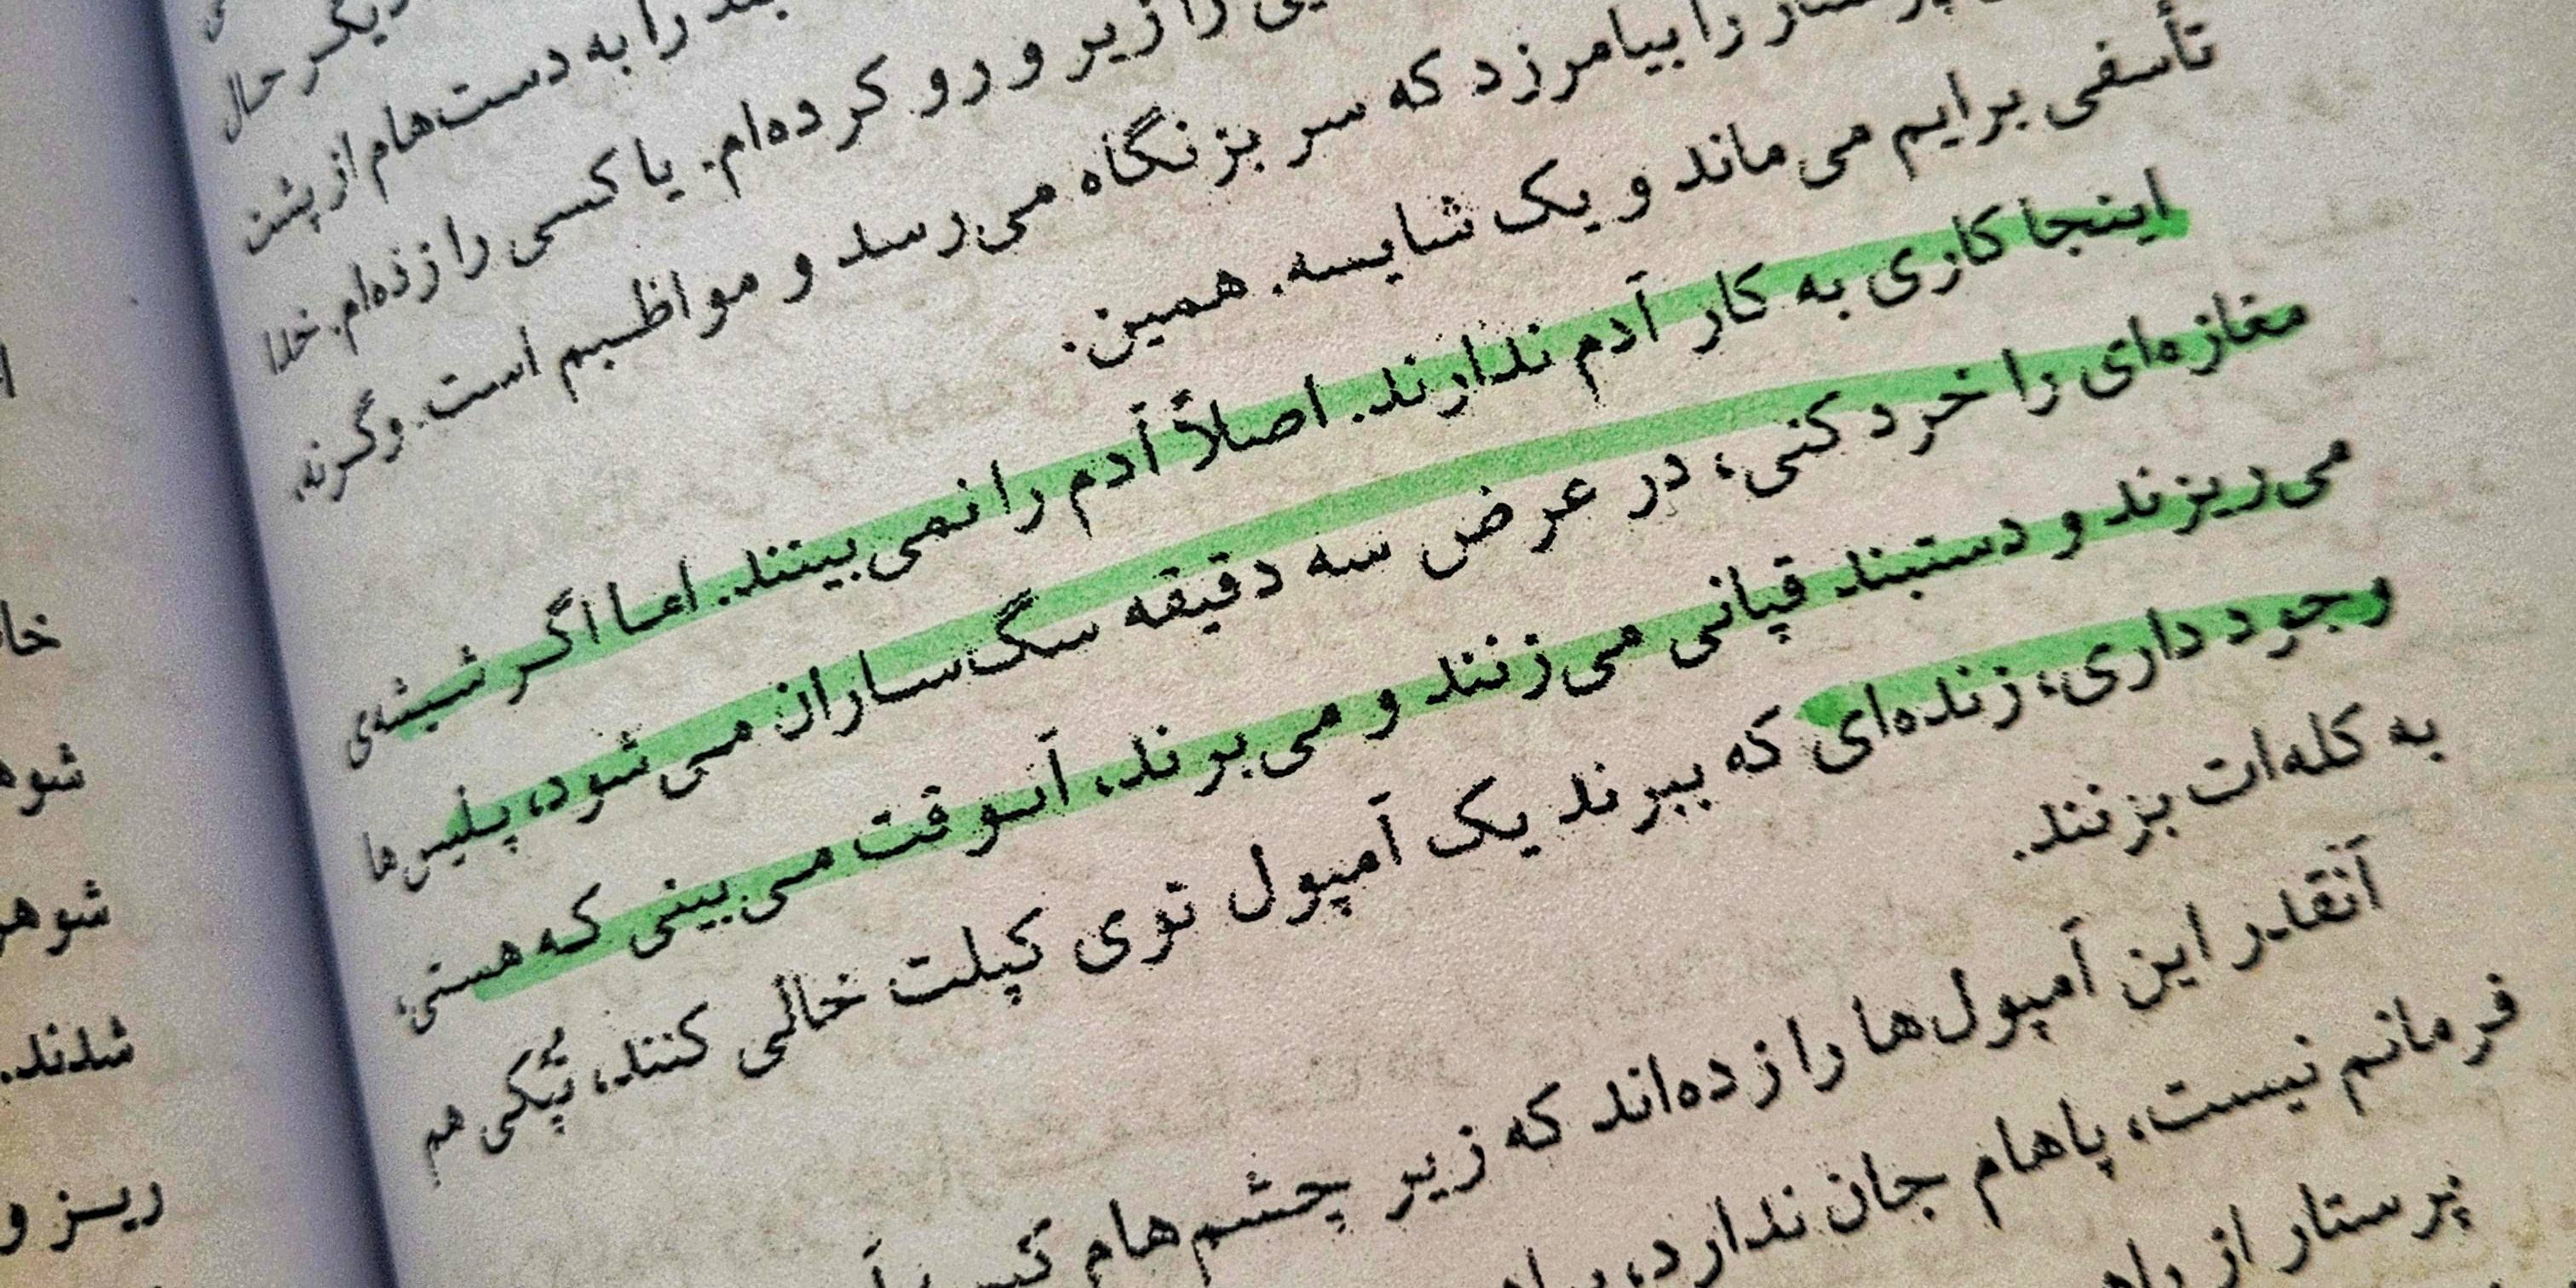 دیگر حال
را به دست‌هام از پشت
را زیر و رو کرده‌ام. یا کسی را زده‌ام. خدا
را بیامرزد که سر بزنگاه می‌رسد و مواظبم است. وگرنه،
تأسفی برایم می‌ماند و یک شایسه. همین.
اینجا کاری به کار آدم ندارند. اصلاً آدم را نمی‌بینند. اما اگر شیشه‌ی
مغازه‌ای را خرد کنی، در عرض سه دقیقه سگ‌ساران می‌شود، پلیس‌ها
می‌ریزند و دستبند قپانی می‌زنند و می‌برند، آنوقت می‌بینی که هستی،
وجود داری، زنده‌ای که ببرند یک آمپول توی کپلت خالی کنند، تُپُکی هم
به کله‌ات بزنند.
آنقدر این آمپول‌ها را زده‌اند که زیر چشم‌هام
فرمانم نیست، پاهام جان ندارد،
پرستار از
خا
شوه
شوهر
شدند.
ریز و